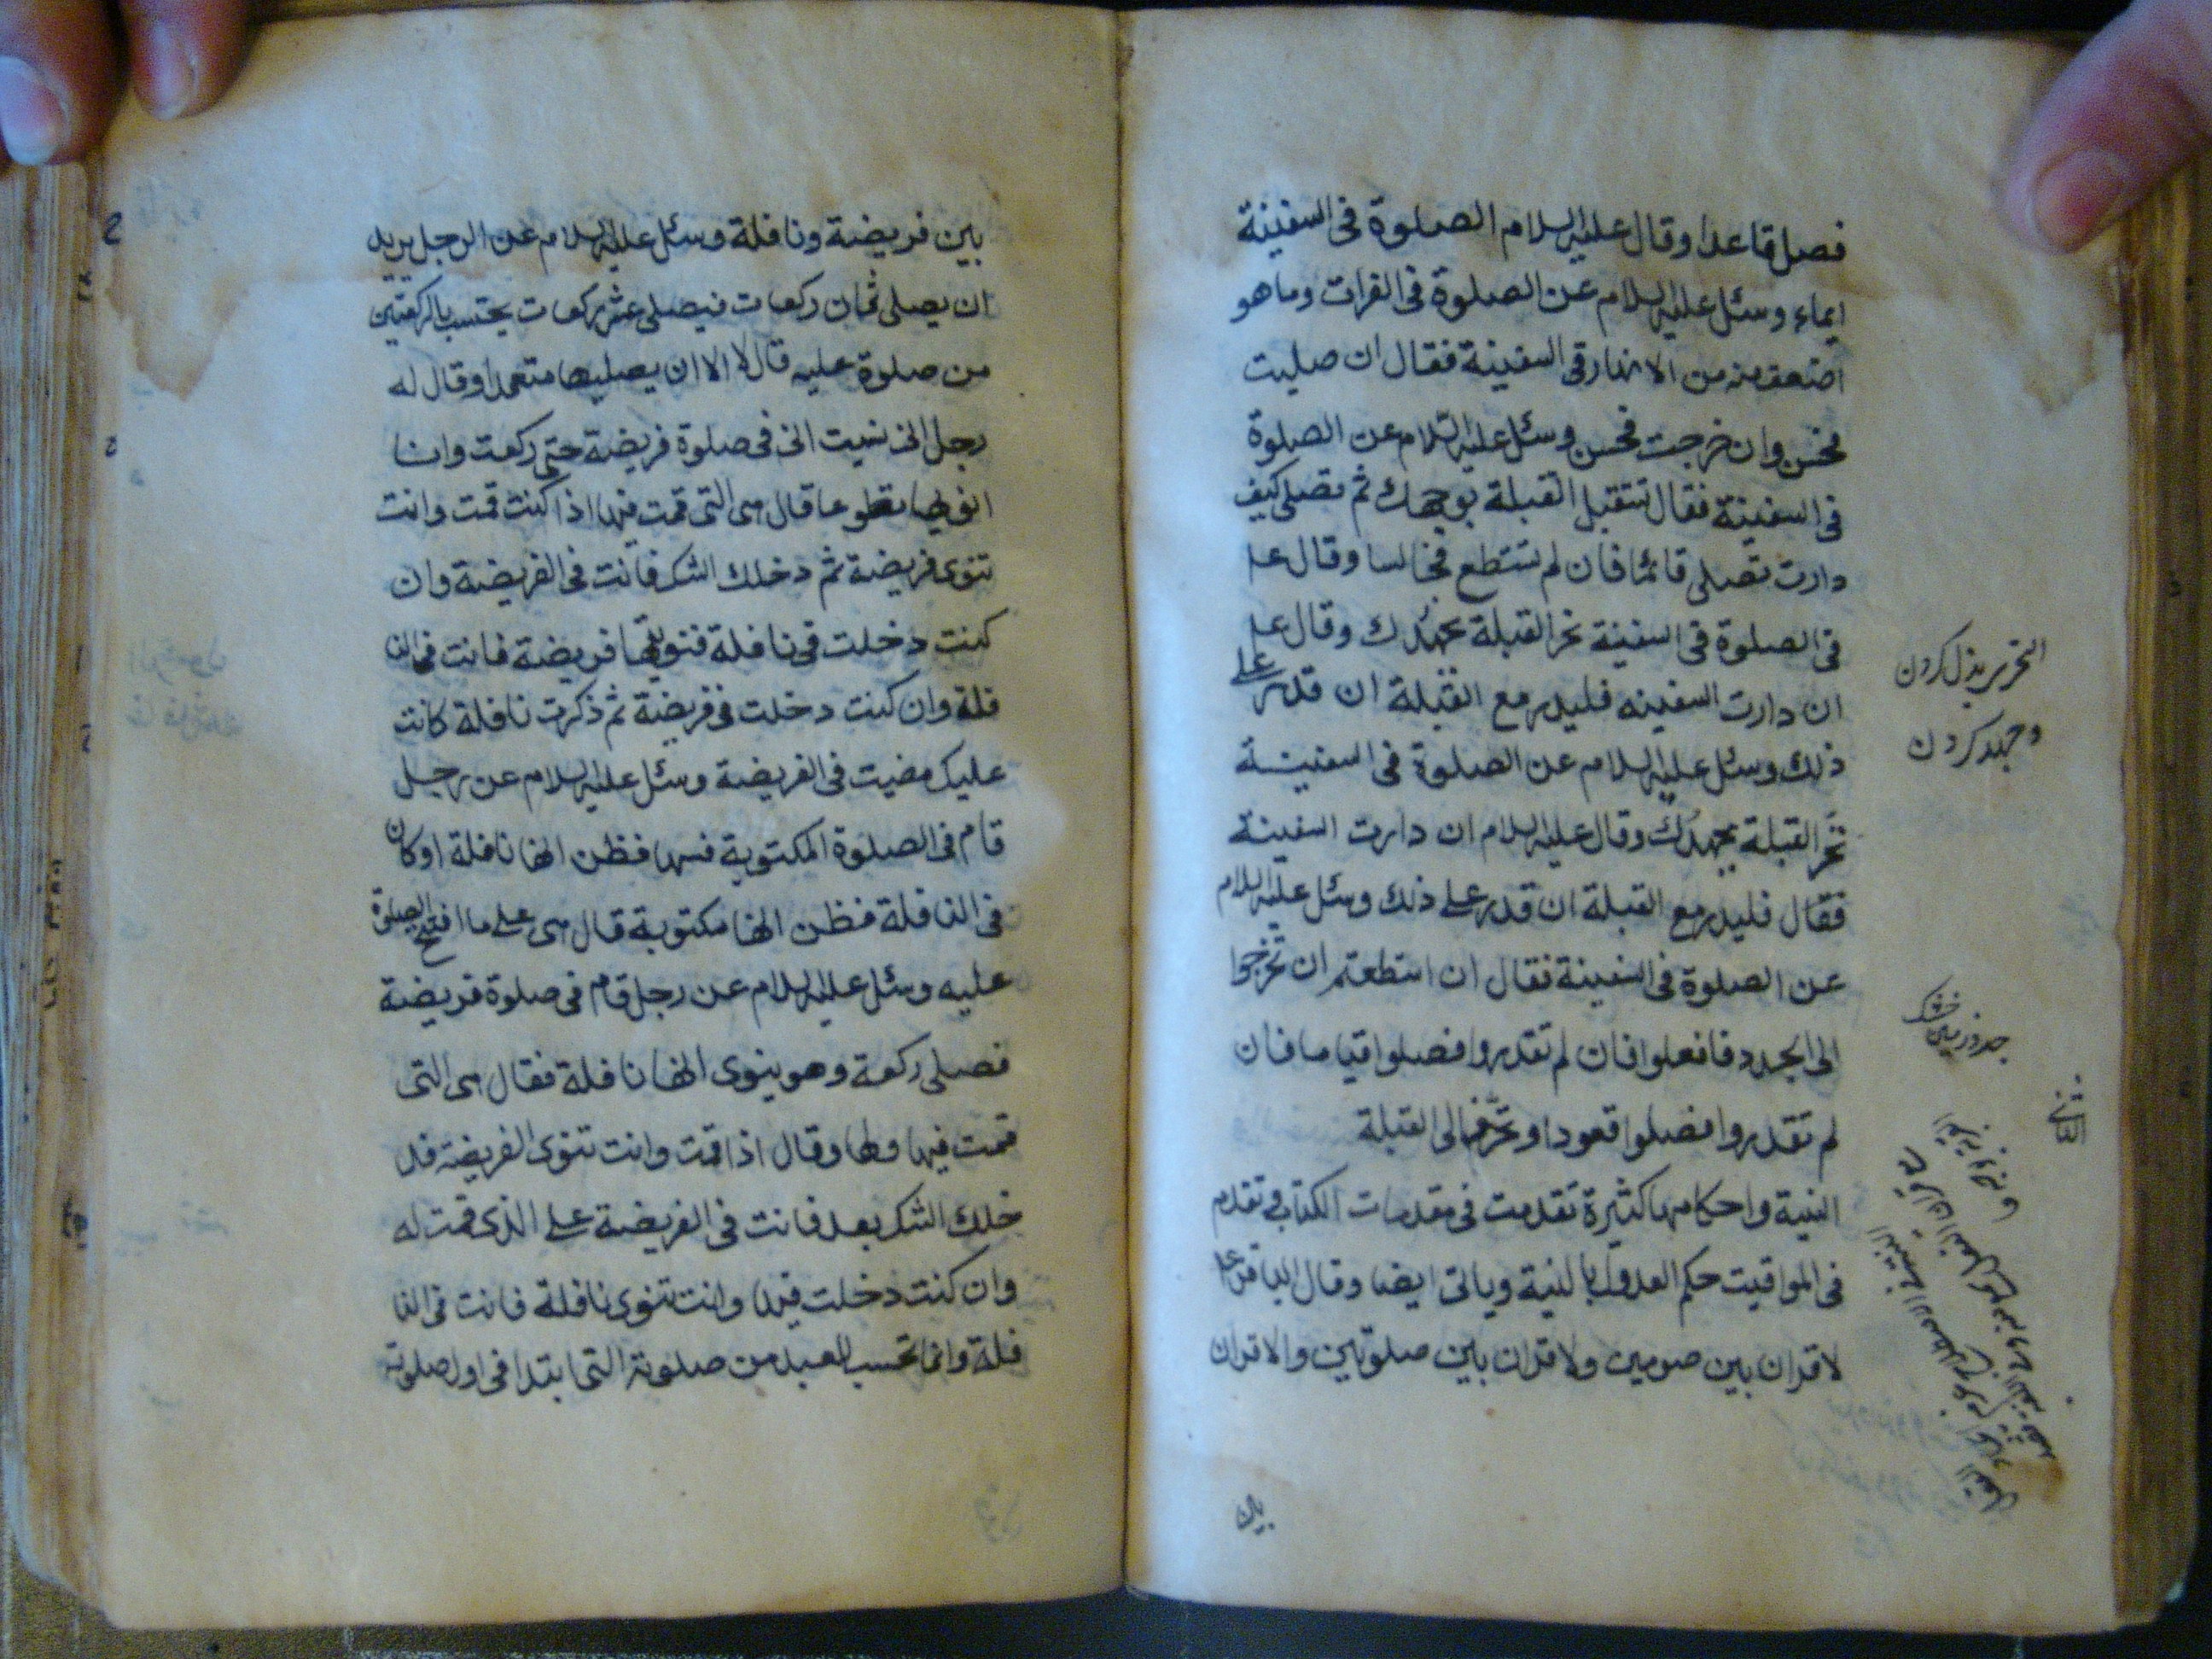 فصل قاعدا وقال عليه السلام الصلوة فى السفينة
ايماء وسئل عليه السلام عن الصلوة فى الفرات وما هو
اضعف منه من الانهار فى السفينة فقال ان صليت
فحسن وان خرجت فحسن وسئل عليه السلام عن الصلوة
فى السفينة فقال تستقبل القبلة بوجهك ثم تصلى كيف
دارت تصلى قائما فان لم تستطع فجالسا وقال ع
فى الصلوة فى السفينة تحر القبلة بجهدك وقال ع
ان دارت السفينه فليدر مع القبلة ان قدر على
ذلك وسئل عليه السلام عن الصلوة فى السفينة
تحر القبلة بجهدك وقال عليه السلام ان دارت السفينة
فقال فليدر مع القبلة ان قدر على ذلك وسئل عليه السلام
عن الصلوة فى السفينة فقال ان استطعتم ان تخرجوا
الى الجدد فافعلوا فان لم تقدروا فصلوا قياما فان
لم تقدروا فصلوا قعودا وتحروا الى القبلة
النية واحكامها كثيرة تقدمت فى مقدمات الكتاب وتقدم
فى المواقيت حكم العدول بالنية وياتى ايضا وقال الباقر ع
لا قران بين صومين ولا قران بين صلوتين ولا قران
التحرى بذل كردن
و جهد كردن
جدد زمين خشك
الثانى
بين
بين فريضة ونافلة وسئل عليه السلام عن الرجل يريد
ان يصلى ثمان ركعات فيصلى عشر ركعات يحتسب بالركعتين
من صلوة عليه قال لا الا ان يصليها متعمدا وقال له
رجل انى نسيت انى فى صلوة فريضة حتى ركعت وانا
انويها تطوعا قال هى التى قمت فيها اذا كنت قمت وانت
تنوى فريضة ثم دخلك الشك فانت فى الفريضة وان
كنت دخلت فى نافلة فنويتها فريضة فانت فى النا
فلة وان كنت دخلت فى فريضة ثم ذكرت نافلة كانت
عليك مضيت فى الفريضة وسئل عليه السلام عن رجل
قام فى الصلوة المكتوبة فسها فظن انها نافلة او كان
فى النافلة فظن انها مكتوبة قال هى على ما افتتح الصلوة
عليه وسئل عليه السلام عن رجل قام فى صلوة فريضة
فصلى ركعة وهو ينوى انها نافلة فقال هى التى
قمت فيها ولها وقال اذا قمت وانت تنوى الفريضة فد
خلك الشك بعد فانت فى الفريضة على الذى قمت له
وان كنت دخلت فيها وانت تنوى نافلة فانت فى النا
فلة وانما تحسب للعبد من صلوته التى ابتدا فى اول صلوته